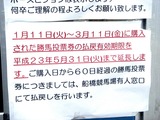 何卒ご理解の程よろしくお願い致します。
1月11日(火)～3月11日(金)に購入
された勝馬投票券の払戻有効期限を
平成23年5月31日(火)まで延長しま
す。ご購入日から60日経過の勝馬投票
券につきましては、船橋競馬場有人窓口
にて払戻しを行います。